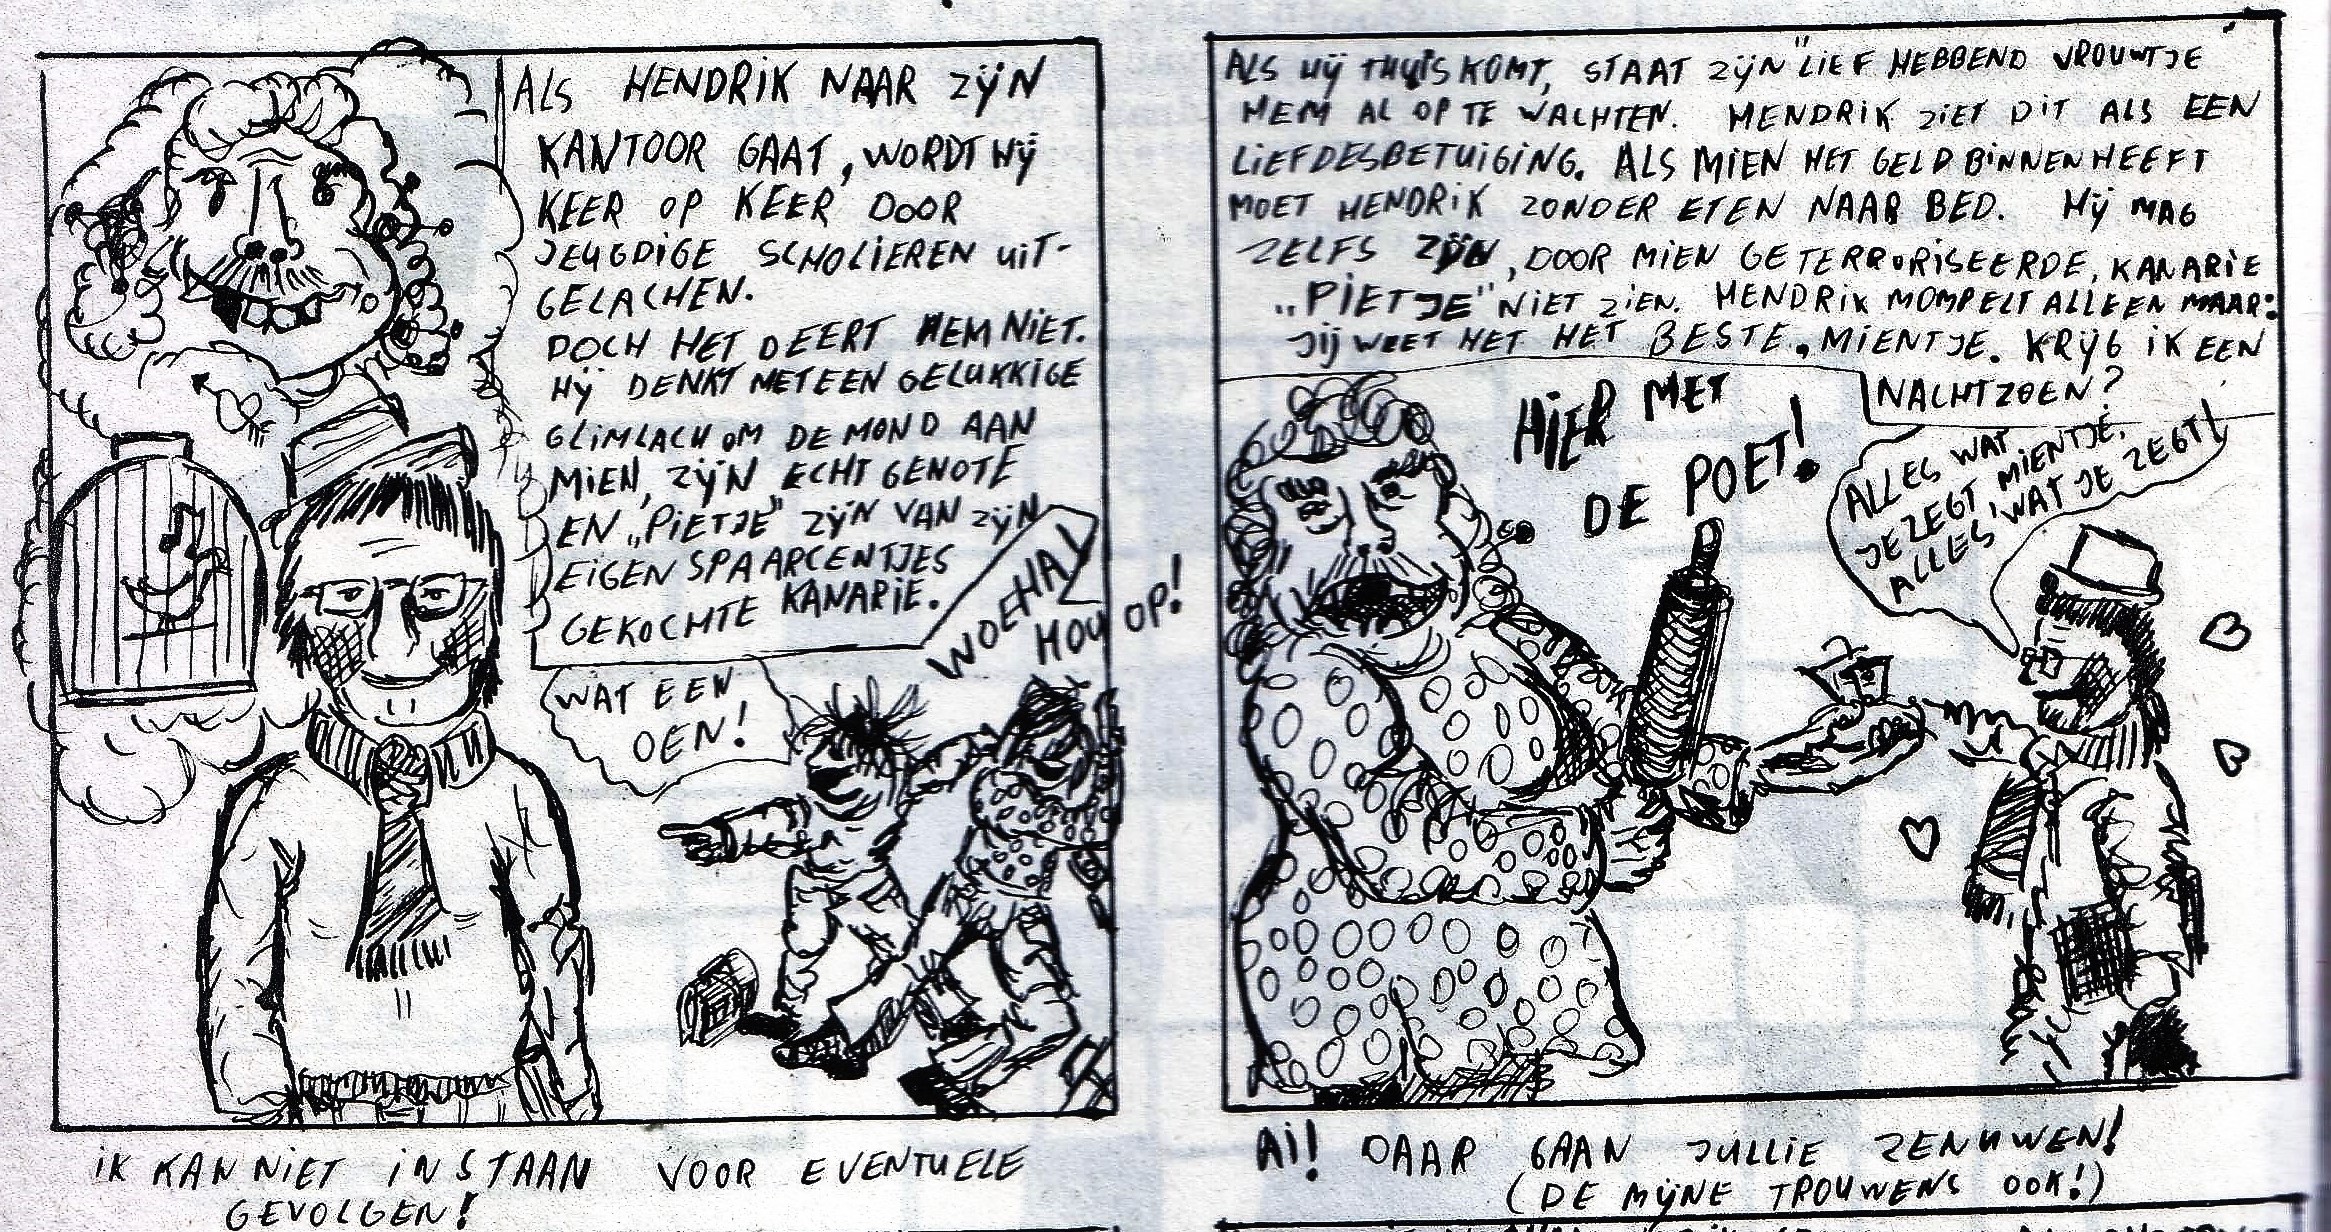 ALS HENDRIK NAAR ZIJN
KANTOOR GAAT, WORDT HIJ
KEER OP KEER DOOR
JEUGDIGE SCHOLIEREN UIT-
GELACHEN.
DOCH HET DEERT HEM NIET.
HIJ DENKT MET EEN GELUKKIGE
GLIMLACH OM DE MOND AAN
MIEN, ZIJN ECHTGENOTE
EN „PIETJE" ZIJN VAN ZIJN
EIGEN SPAARCENTJES
GEKOCHTE KANARIE.
WOEHA!
HOU OP!
WAT EEN
OEN!
IK KAN NIET INSTAAN VOOR EVENTUELE
GEVOLGEN!
ALS HIJ THUIS KOMT, STAAT ZIJN "LIEF HEBBEND VROUWTJE"
HEM AL OP TE WACHTEN. HENDRIK ZIET DIT ALS EEN
LIEFDESBETUIGING. ALS MIEN HET GELD BINNEN HEEFT
MOET HENDRIK ZONDER ETEN NAAR BED. HIJ MAG
ZELFS ZIJN, DOOR MIEN GETERRORISEERDE, KANARIE
„PIETJE" NIET ZIEN. HENDRIK MOMPELT ALLEEN MAAR:
JIJ WEET HET HET BESTE, MIENTJE. KRIJG IK EEN
NACHTZOEN?
HIER MET
DE POET!
ALLES WAT
JE ZEGT, MIENTJE,
ALLES, WAT JE ZEGT!
AI! DAAR GAAN JULLIE ZENUWEN!
(DE MIJNE TROUWENS OOK!)